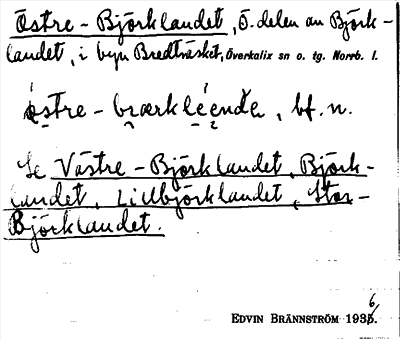 Östre-Björklandet, Ö. delen av Björk-
landet, i byn Bredträsket, Överkalix sn o. tg. Norrb. l.
östre-brærkléenda, bf. n.
Se Västre-Björklandet, Björk-
landet, Lillbjörklandet, Stor-
Björklandet.
EDVIN BRÄNNSTRÖM 1936.